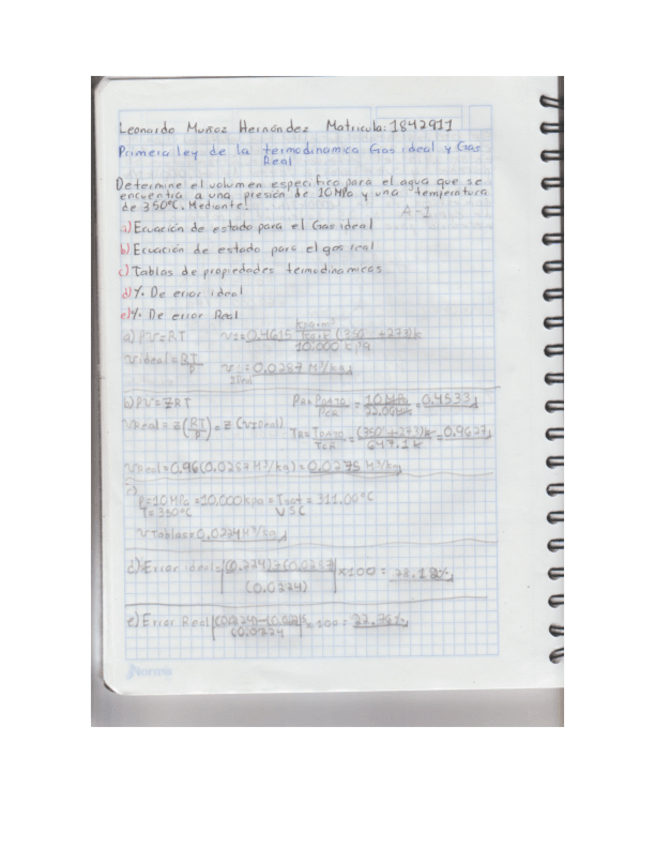 Leonardo Muñoz Hernández Matricula: 1842911
Primera ley de la termodinamica Gas ideal y Gas
Real
Determine el volumen especifico para el agua que se
encuentra a una presión de 10MPa y una temperatura
de 350°C. Mediante:
A-1
a) Ecuación de estado para el Gas ideal
b) Ecuación de estado para el gas real
c) Tablas de propiedades termodinamicas
d) %. De error ideal
e) %. De error Real
a) PV=RT V=0.4615 (350°+273)k
10.000 kpa
Videal=RT/P V ideal=0.0287 M³/kg
b) PV=ZRT PR=PDATO/PCR=10 MPa/22.06MPa=0.4533
VReal=Z(RT/P)=Z(VIDeal) TR=TDATO/TCR=(350°+273)k/647.1k=0.9627
VReal=0.96(0.0287 M³/kg)=0.0275 M³/kg
c)
P=10MPa=10.000kpa=Tsat=311.00°C
T=350°C VSC
VTablas=0.0224M³/kg
d) Error ideal= x100=28.12%
(0.0224)
e) Error Real x100=22.76%
0.0224
Norma